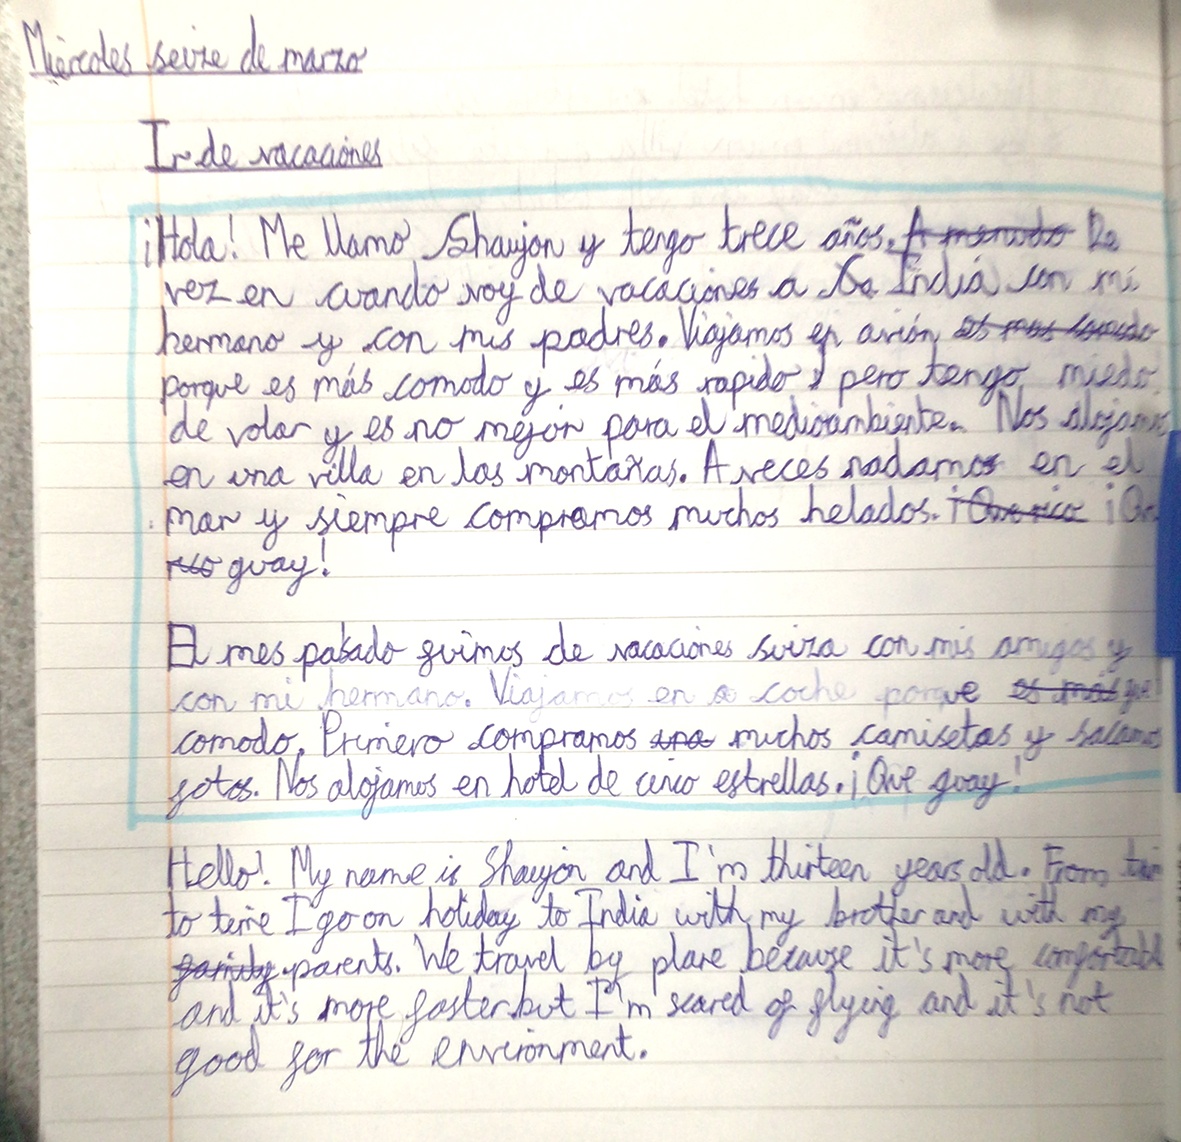 Miércoles seize de marzo
Ir de vacaciones
¡Hola! Me llamo Shayon y tengo trece años. A menudo De
vez en cuando voy de vacaciones a La India con mi
hermano y con mis padres. Viajamos en avión
porque es más comodo y es más rapido, pero tengo miedo
de volar y es no mejor para el medioambiente. Nos alojamos
en una villa en las montañas. A veces nadamos en el
mar y siempre compramos muchos helados. ¡Que rico ¡Que
guay!
El mes pasado fuimos de vacaciones suiza con mis amigos y
con mi hermano. Viajamos en coche porque es más fue
comodo. Primero compramos una muchos camisetas y sacamos
fotos. Nos alojamos en hotel de cinco estrellas. ¡Que guay!
Hello! My name is Shayon and I'm thirteen years old. From time
to time I go on holiday to India with my brother and with my
family parents. We travel by plane because it's more comfortable
and it's more faster but I'm scared of flying and it's not
good for the environment.